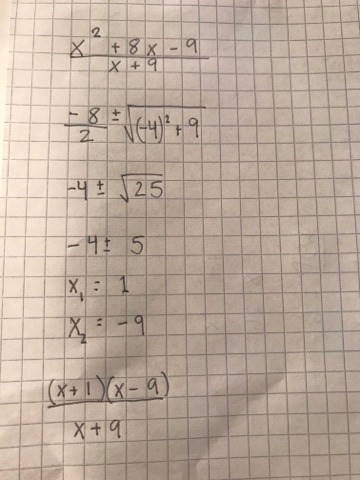 x² + 8x - 9
x + 9
- 8 ± √(-4)² + 9
2
-4 ± √25
- 4 ± 5
x₁ = 1
x₂ = -9
(x + 1)(x - 9)
x + 9